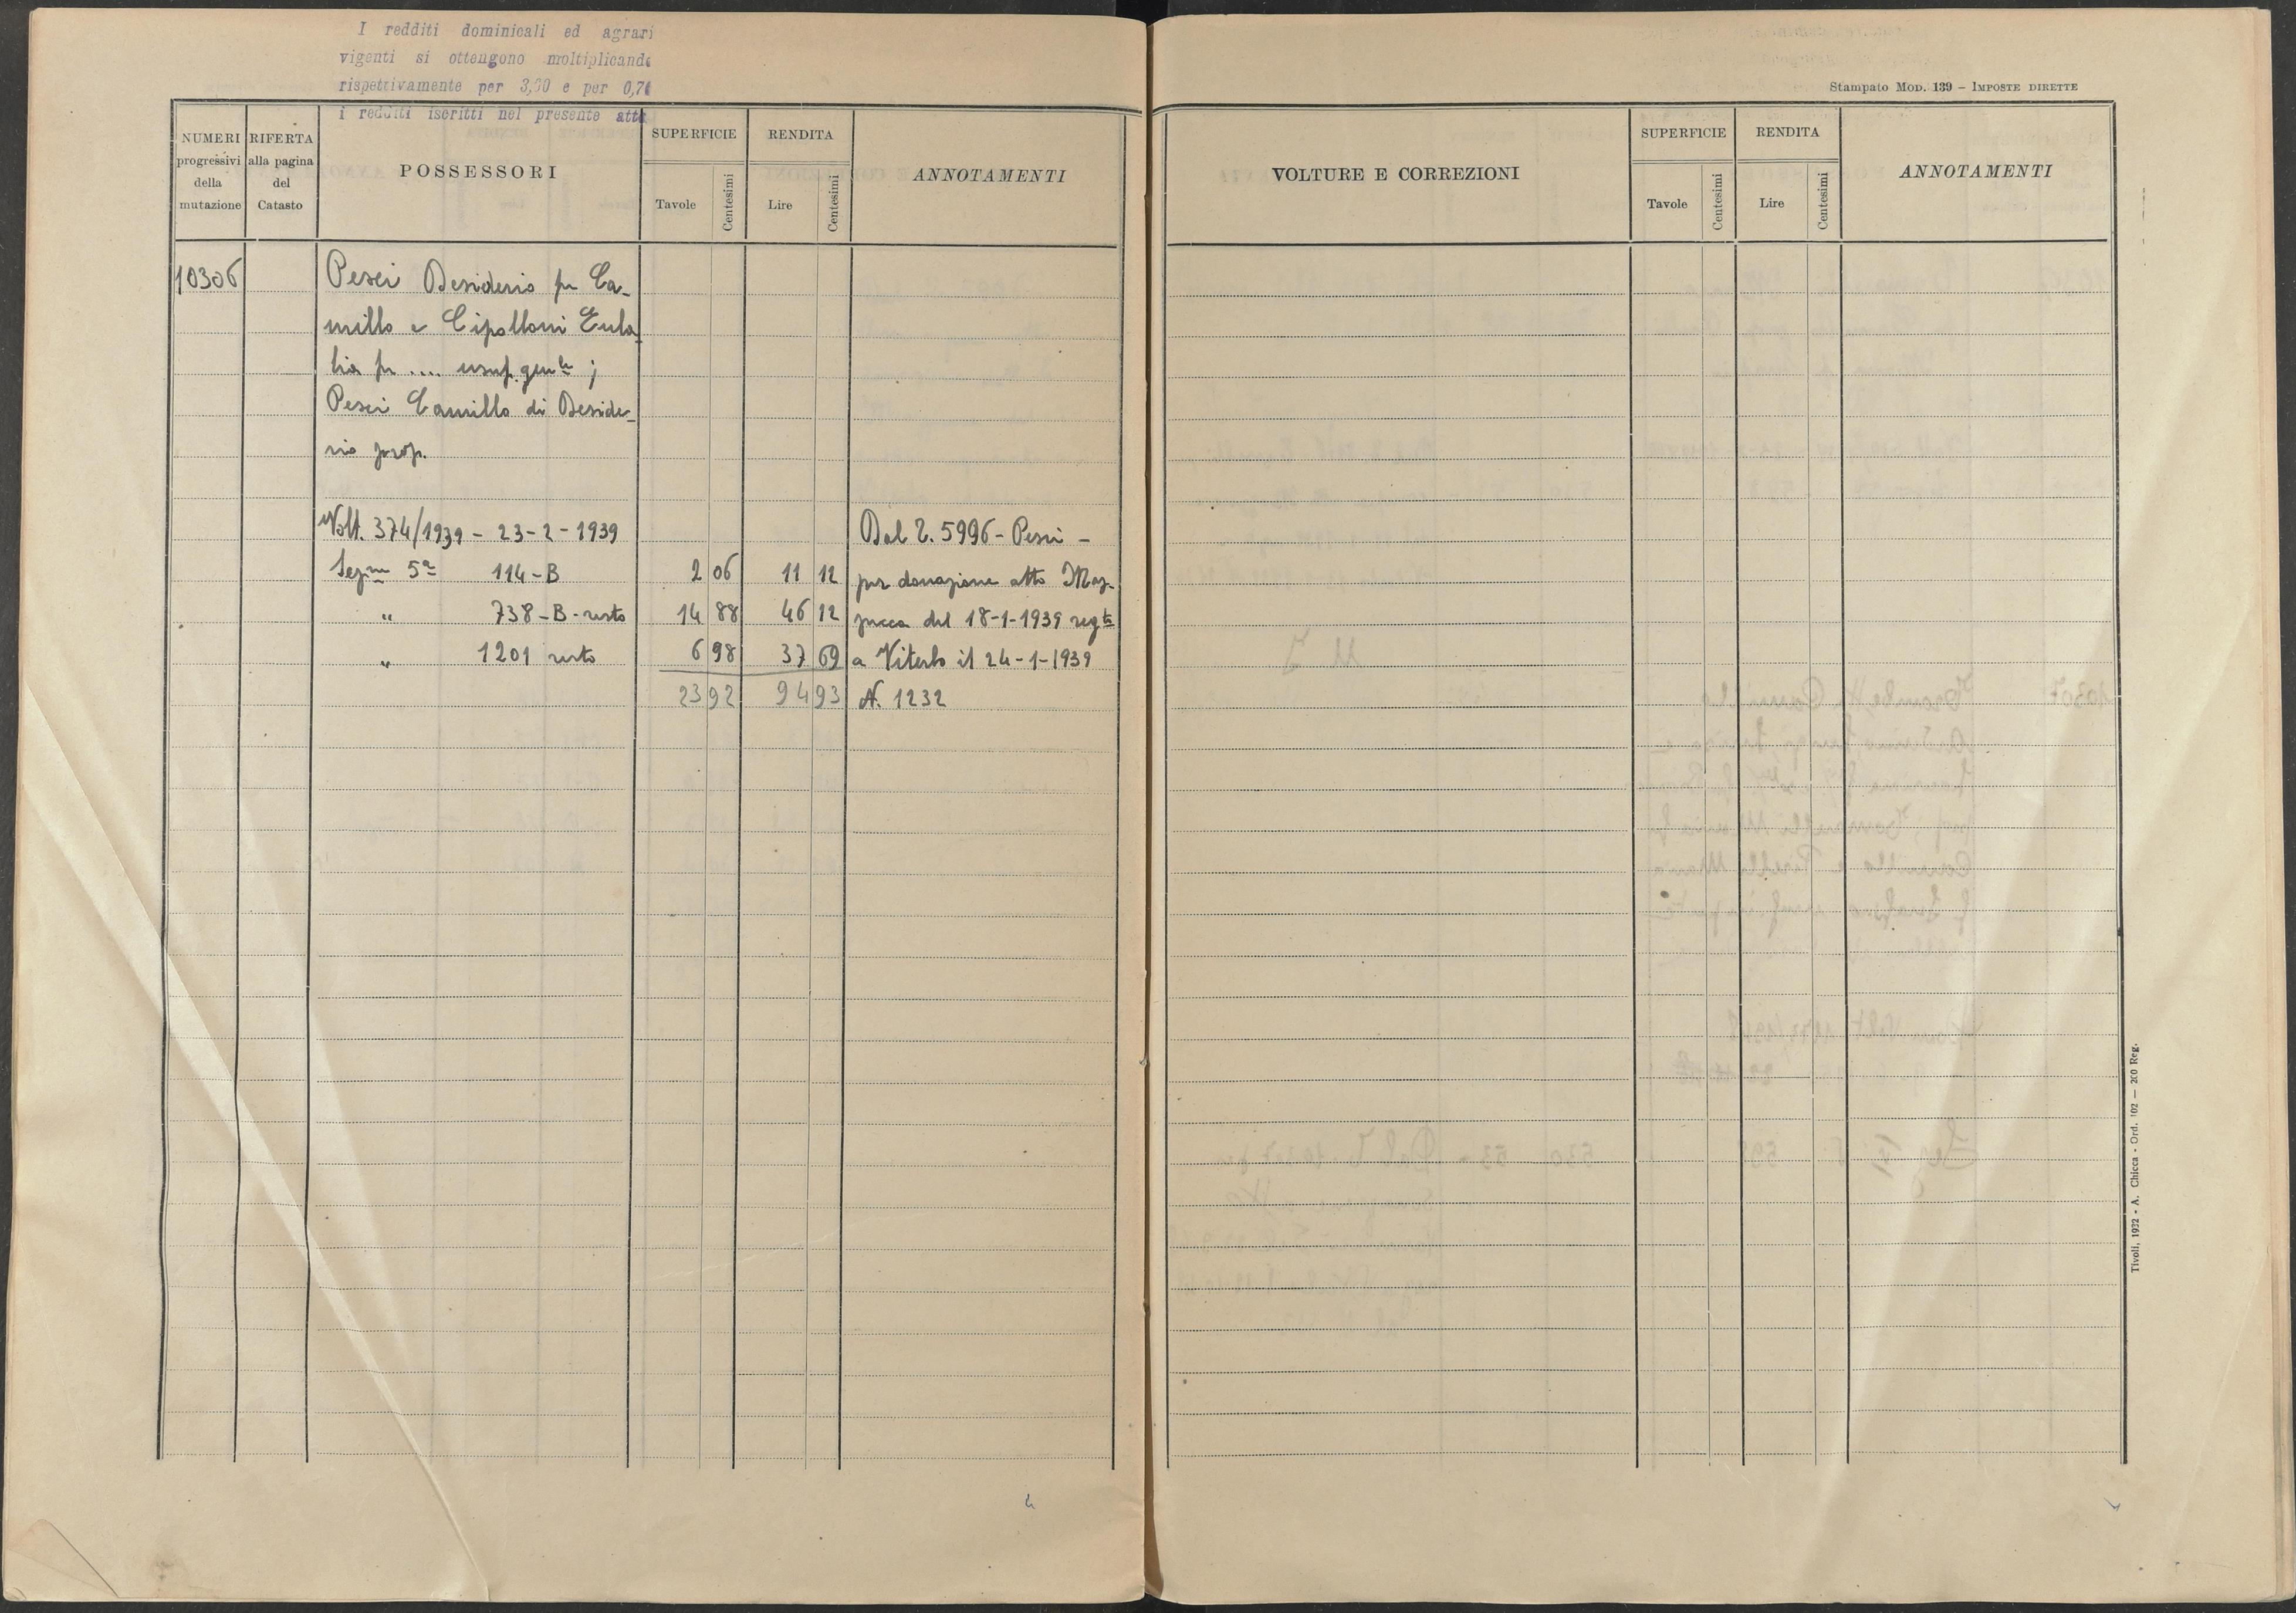 I redditi dominicali ed agrari
vigenti si ottengono moltiplicando
rispettivamente per 3,60 e per 0,70
i redditi iscritti nel presente atto
Stampato Mod. 139 – Imposte dirette
NUMERI progressivi della mutazione
RIFERTA alla pagina del Catasto
POSSESSORI
SUPERFICIE
Tavole Centesimi
RENDITA
Lire Centesimi
ANNOTAMENTI
10306
Pesci Desiderio fu Ca-
millo e Cipolloni Eula-
lia fu .... usuf. genle ;
Pesci Camillo di Deside-
rio prop.
Volt. 374/1939 - 23-2-1939
Dal 2. 5996 - Pesci -
Sezne 5ª 114-B 2 06 11 12 per donazione atto Maz-
" 738-B-resto 14 88 46 12 zucca del 18-1-1939 regto
" 1201 resto 6 98 37 69 a Viterbo il 24-1-1939
23 92 94 93 N. 1232
VOLTURE E CORREZIONI
SUPERFICIE
Tavole Centesimi
RENDITA
Lire Centesimi
ANNOTAMENTI
Tivoli, 1932 - A. Chicca - Ord. 102 — 200 Reg.